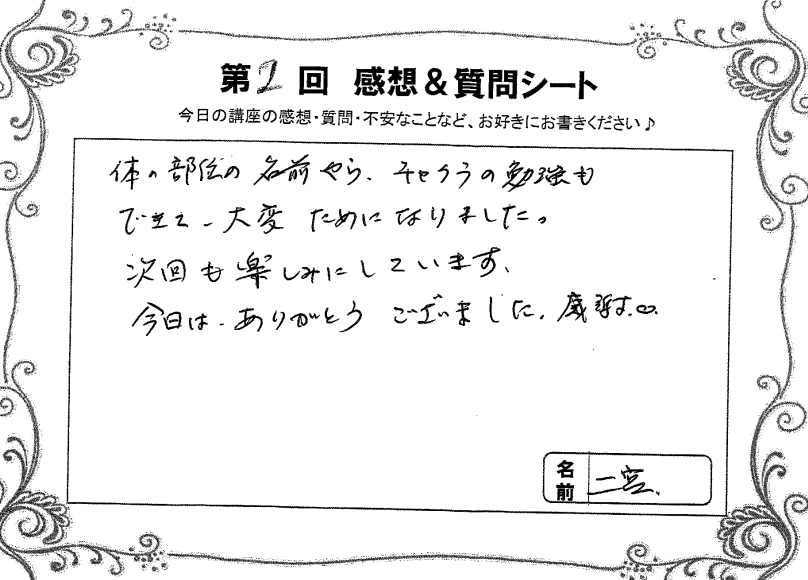 第2回 感想&質問シート
今日の講座の感想・質問・不安なことなど、お好きにお書きください♪
体の部位の名前やら、チャクラの勉強も
できて、大変ためになりました。
次回も楽しみにしています、
今日は、ありがとうございました、感謝す。
名前 二宮、